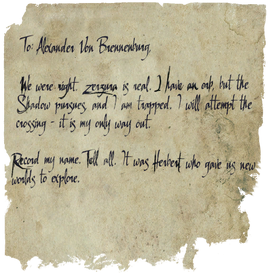 To: Alexander Von Brennenburg.
We were right. zerzura is real. I have an orb, but the
Shadow pursues, and I am trapped. I will attempt the
crossing - it is my only way out.
Record my name. Tell all. It was Herbert who gave us new
worlds to explore.